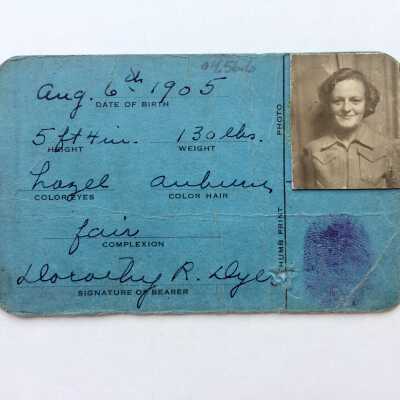 Aug. 6th 1905
DATE OF BIRTH
5 ft 4 in. 130 lbs.
HEIGHT WEIGHT
hazel auburn
COLOR EYES COLOR HAIR
fair
COMPLEXION
Dorothy R. Dyer
SIGNATURE OF BEARER
PHOTO
THUMB PRINT